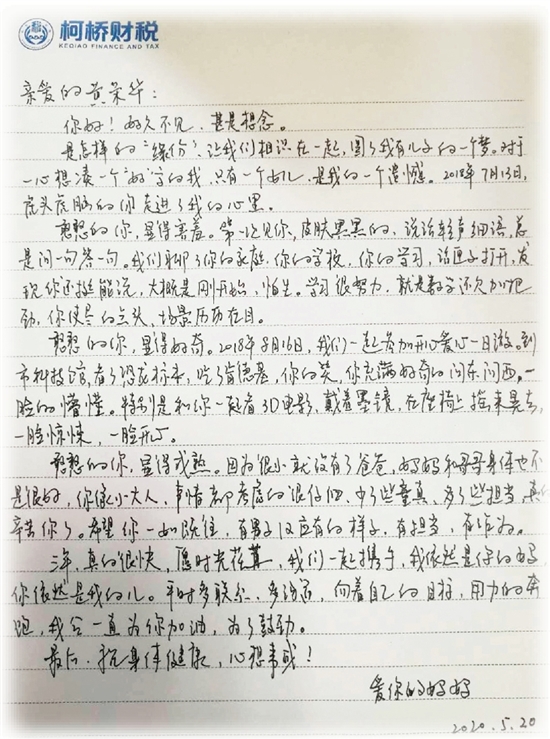 柯桥财税
KEQIAO FINANCE AND TAX
亲爱的黄荣华：
你好！好久不见，甚是想念。
是怎样的“缘份”，让我们相识在一起，圆了我有儿子的一个梦。对于
一心想凑一个“好”字的我，只有一个女儿，是我的一个遗憾。2018年7月13日，
虎头虎脑的你走进了我的心里。
憨憨的你，显得害羞。第一次见你，皮肤黑黑的，说话轻声细语，总
是问一句答一句。我们聊了你的家庭，你的学校，你的学习，话匣子打开，发
现你还挺能说，大概是刚开始，怕生。学习很努力，就是数学还欠加把
劲，你使尽的点头，场景历历在目。
憨憨的你，显得好奇。2018年8月16日，我们一起参加开心爱心一日游。到
市科技馆，看了恐龙标本，吃了肯德基，你的笑，你充满好奇的问东问西，一
脸的懵懂。特别是和你一起看3D电影，戴着墨镜，在座椅上摇来晃去，
一脸惊悚，一脸开心。
憨憨的你，显得成熟。因为很小就没有了爸爸，妈妈和哥哥身体也不
是很好，你像小大人，事情都考虑的很仔细，少了些童真，多了些担当，真的
辛苦你了。希望你一如既往，有男子汉应有的样子，有担当，有作为。
三年，真的很快，愿时光荏苒，我们一起携手，我依然是你的妈，
你依然是我的儿。平时多联系，多沟通，向着自己的目标，用力的奔
跑，我会一直为你加油，为了鼓劲。
最后，祝身体健康，心想事成！
爱你的妈妈
2020.5.20